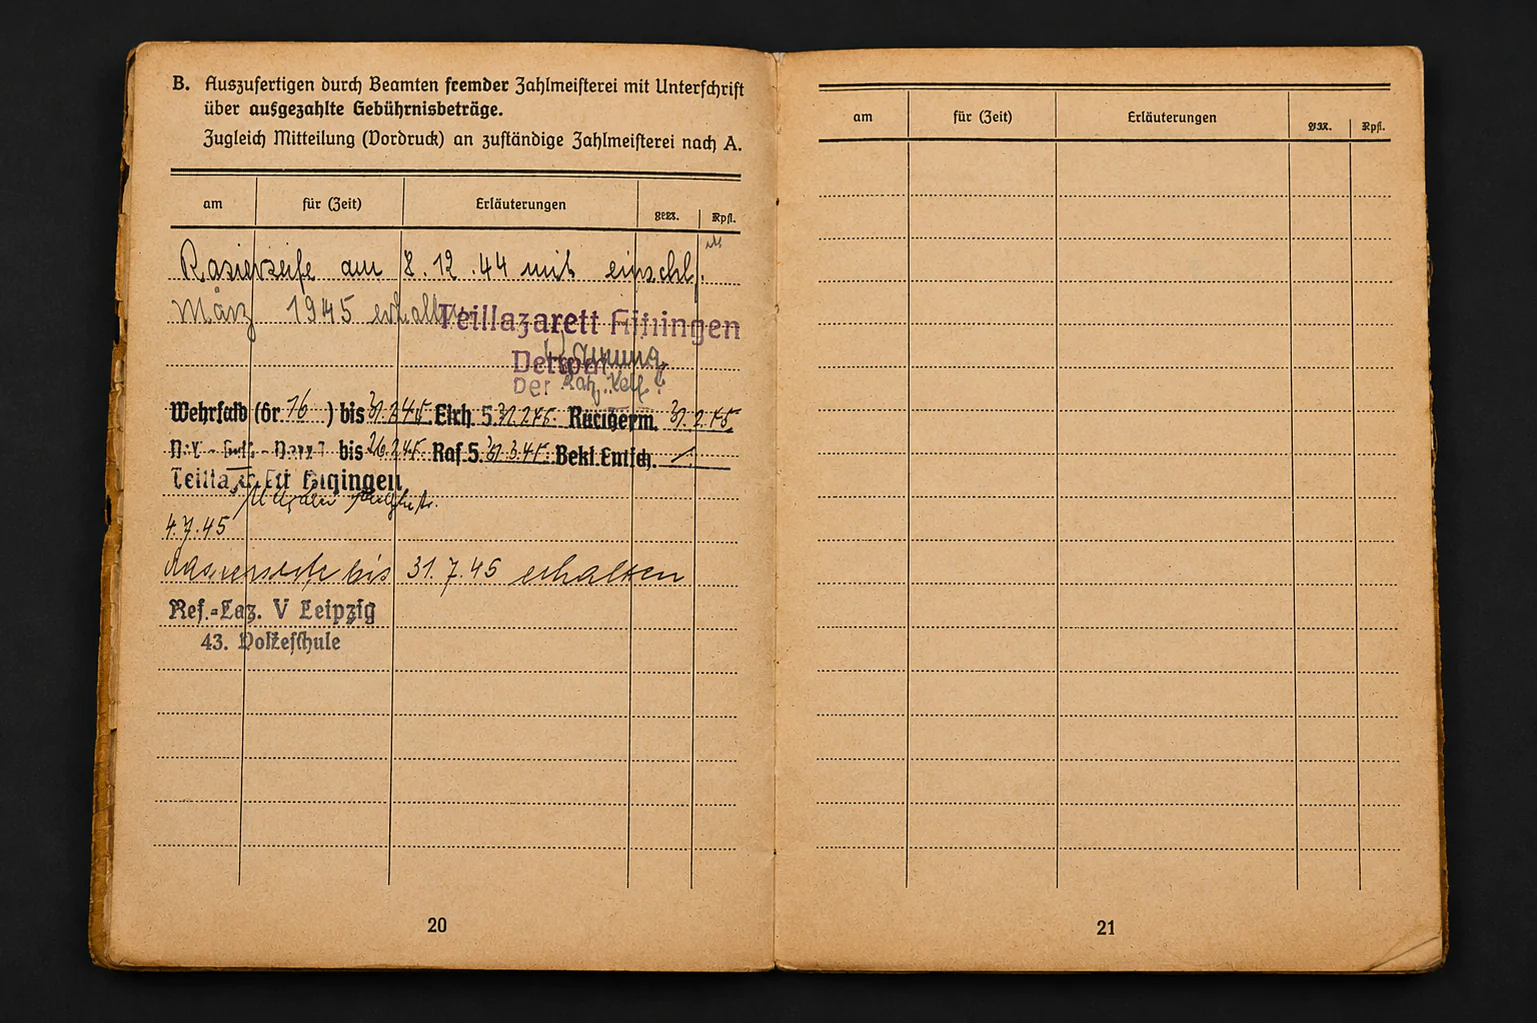 B. Auszufertigen durch Beamten fremder Zahlmeisterei mit Unterschrift
über ausgezahlte Gebührnisbeträge.
Zugleich Mitteilung (Vordruck) an zuständige Zahlmeisterei nach A.
am für (Zeit) Erläuterungen Rpf.
Rasierseife am 8.12.44 mit einschl.
März 1945 erhalten
Teillazarett
Der
Wehrsold (Gr. 16 ) bis 31.2.45. Elch. S. 31.2.45. 31.2.45
bis 26.2.45. Ras. S. 31.3.45. Bekl. Entsch.
4.7.45
Rasierseife bis 31.7.45 erhalten
Res.-Laz. V Leipzig
43. Volksschule
20
am für (Zeit) Erläuterungen Rpf.
21